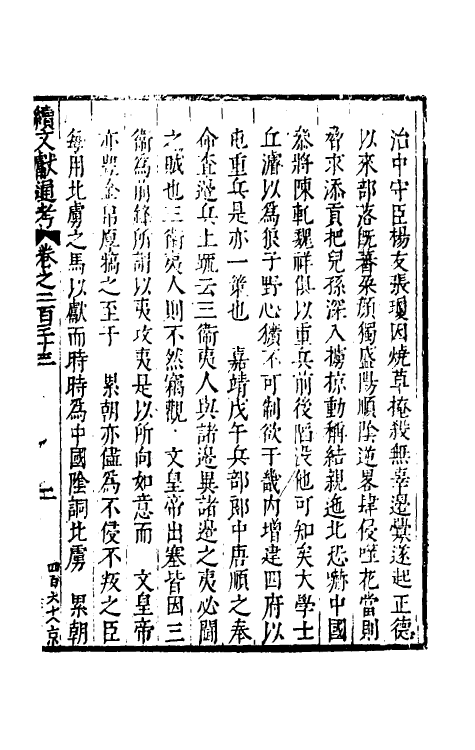 治中守臣楊友張瓊因燒草掩殺無辜邊釁遂起正德
以來部落既蕃朶顏獨盛陽順陰逆畧肆侵噬花當則
脅求添貢把兒孫深入擄掠動稱結親迤北恐嚇中國
叅將陳乾魏祥俱以重兵前後陷沒他可知矣大學士
丘濬以為狼子野心猶不可制欲于畿內增建四府以
屯重兵是亦一策也　嘉靖戊午兵部郎中唐順之奉
命查邊兵上疏云三衛夷人與諸邊異諸邊之夷必鬪
之賊也三衛夷人則不然竊觀　文皇帝出塞皆因三
衛為前鋒所謂以夷攻夷是以所向如意而　文皇帝
亦豐金帛厚犒之至于　累朝亦儘為不侵不叛之臣
每用北虜之馬以獻而時時為中國陰詷北虜　累朝
續文獻通考　卷之二百三十三　　二　四百六十八　京